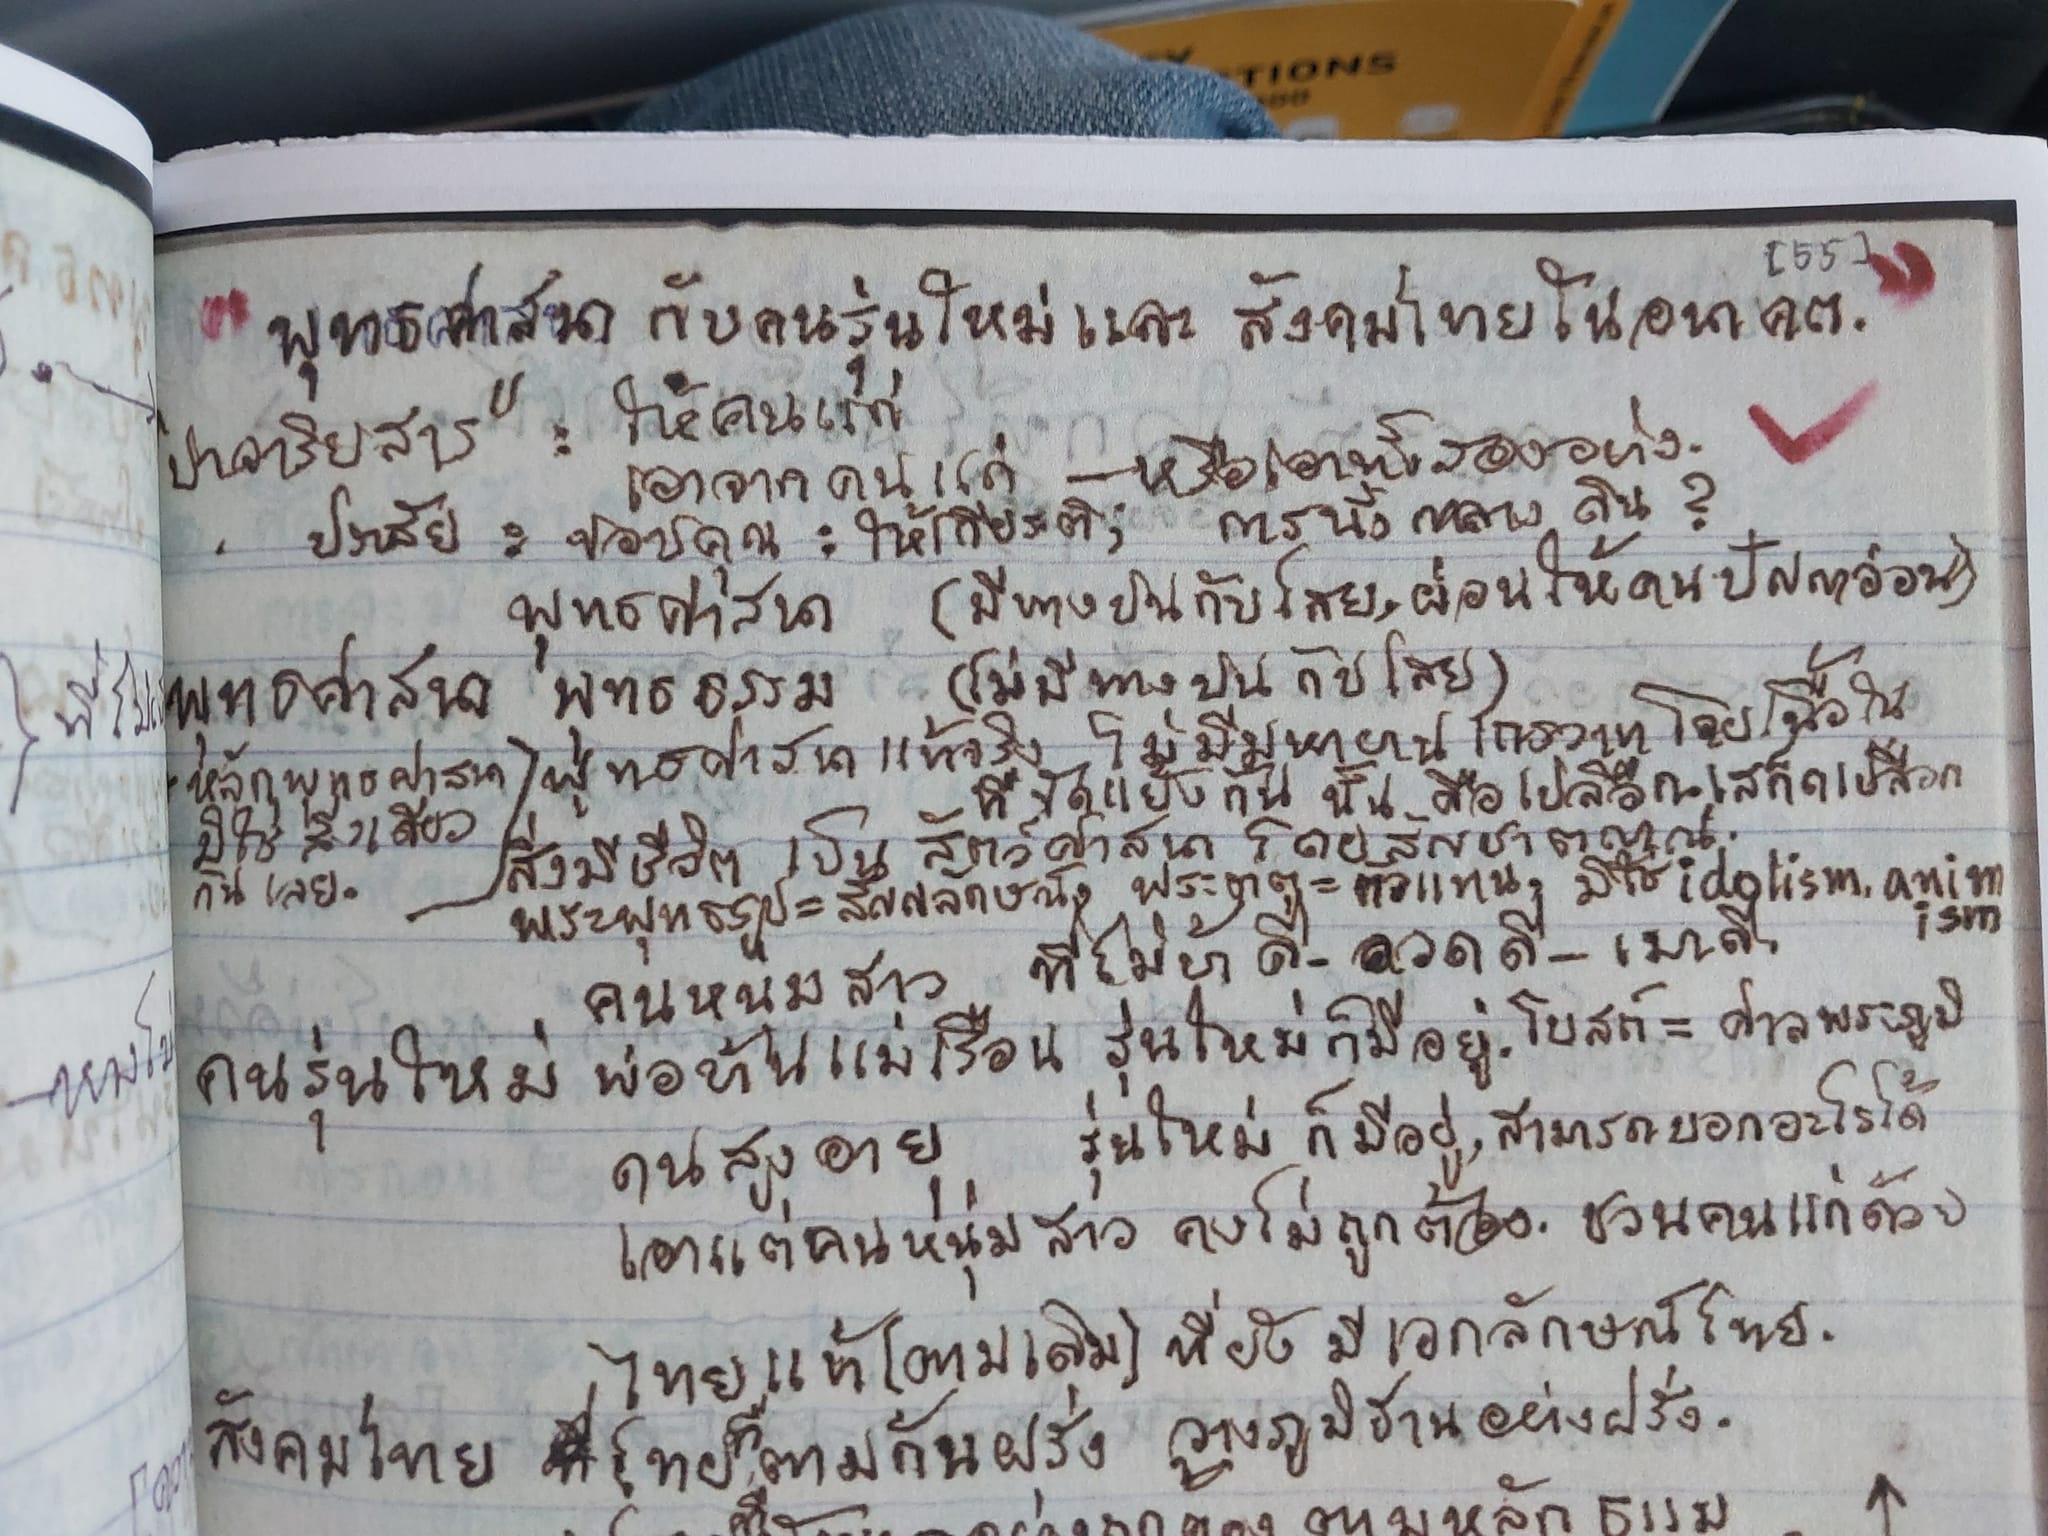 TIONS
[55]
"พุทธศาสนา กับคนรุ่นใหม่และ สังคมไทยในอนาคต."
"ปาจารยสาร" : ให้คนแก่
เอาจากคนแก่ – หรือเอาทั้งสองอย่าง.
ปราศัย : ขอบคุณ : ให้เกียรติ; การนั่งกลางดิน ?
พุทธศาสนา (มีทางปนกับไสย, ผ่อนให้คนปัญญาอ่อน)
พุทธศาสนา พุทธธรรม (ไม่มีทางปนกับไสย)
พุทธศาสนาแท้จริง ไม่มีมหายาน เถรวาท โดยเนื้อใน
ที่ขัดแย้งกันนั้น คือเปลือก, เสก็ดเปลือก
หลักพุทธศาสนา)
มิใช่ สิ่งเดียว
กันเลย.
สิ่งมีชีวิต เป็น สัตว์ศาสนา โดยสัญชาตญาณ.
พระพุทธรูป = สัญญลักษณ์, พระธาตุ = ตัวแทน, มิใช่ idolism. anim
ism
คนหนุ่มสาว ที่ไม่บ้าดี – อวดดี – เมาดี.
คนรุ่นใหม่ พ่อบ้านแม่เรือน รุ่นใหม่ก็มีอยู่. โบสถ์ = ศาลพระภูมิ
คนสูงอายุ รุ่นใหม่ ก็มีอยู่, สามารถบอกอะไรได้
เอาแต่คนหนุ่มสาว คงไม่ถูกต้อง. ชวนคนแก่ด้วย
ไทยแท้ (ตามเดิม) ที่ยังมีเอกลักษณ์ไทย.
สังคมไทย ไทยที่ตามก้นฝรั่ง วางภูมิฐานอย่างฝรั่ง.
ตามหลักธรรม